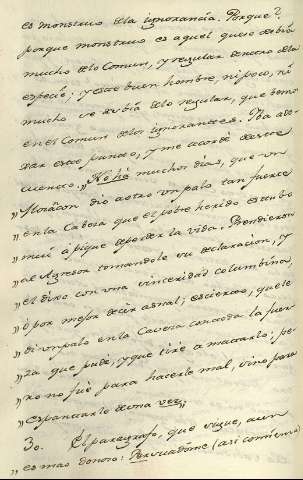 es monstruo de la ignorancia. Porque?
porque monstruo es aquel que se desbia
mucho de lo Comun, y regular dentro de la
especie: y este buen hombre, ni poco, ni
mucho se desbia de lo regular, que vemos
en el Comun de los ignorantes. Iba a de-
xar este punto, y me acordé de este
cuento. „No há muchos dias, que un
„ dio a otro un palo tan fuerte
„ en la Cabeza que el pobre herido estubo
„ mui á pique de perder la vida. Prendieron
„ al Agresor tomandole su declaracion, y
„ él dixo con una sinceridad columbina,
„ ó por mejor decir asnal; es cierto, que le
„ di un palo en la Caveza con toda la fuer-
„ za que pude, y que tiré a matarlo; pe-
„ ro no fué para hacerle mal, sino para
„ espantarlo de una vez„
30. El paragrafo, que sigue, aun
„ es mas donoso: Persuadome (asi comienza)